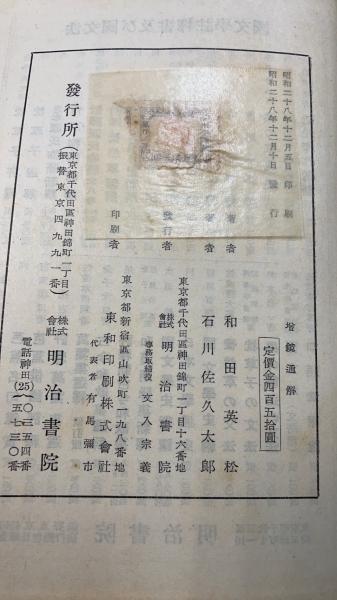 增鏡通解
定價金四百五拾圓
昭和二十八年十二月五日印刷
昭和二十八年十二月十日發行
著者 和田英松
著者 石川佐久太郎
發行者 東京都千代田區神田錦町一丁目十六番地
株式會社 明治書院
專務取締役 文入宗義
印刷者 東京都新宿區山吹町一九八番地
東和印刷株式會社
代表者 有馬彌市
發行所 (東京都千代田區神田錦町一丁目
振替東京四九九一番) 株式會社 明治書院
電話神田(25){〇三五四番
一五七三〇番